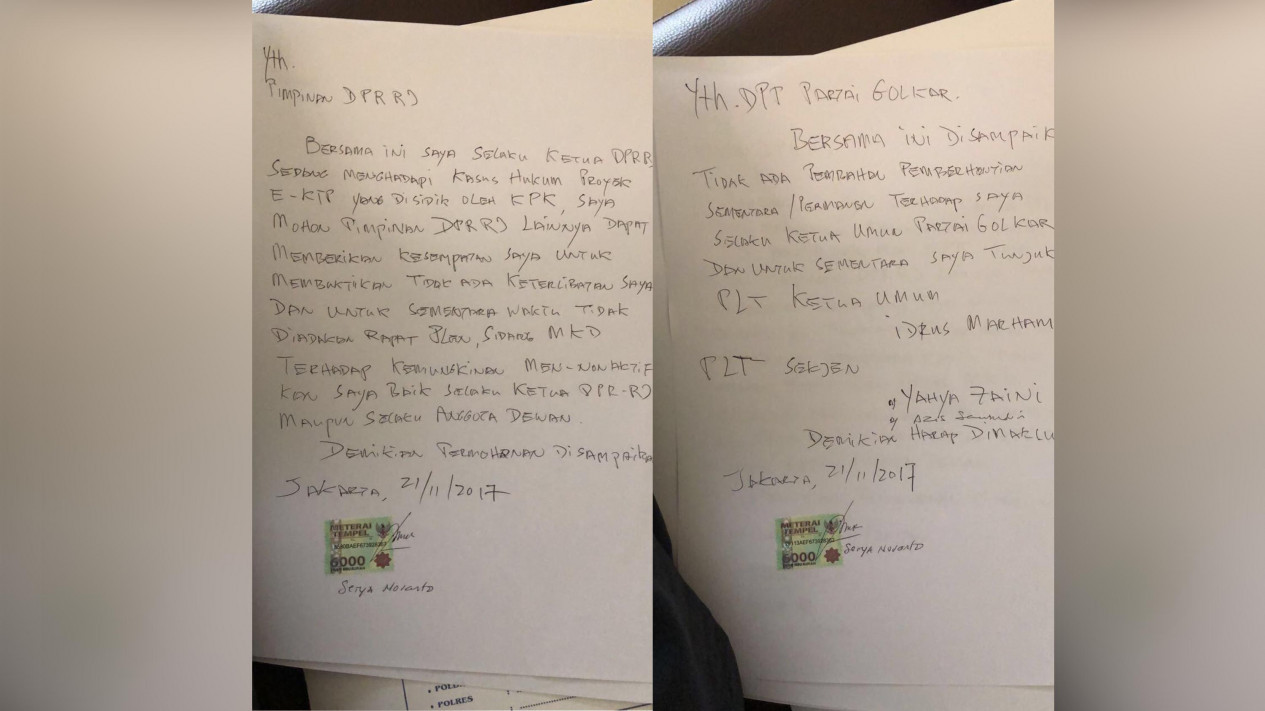 Yth.
PIMPINAN DPR RI
BERSAMA INI SAYA SELAKU KETUA DPR R
SEDANG MENGHADAPI KASUS HUKUM PROYEK
E-KTP YANG DISIDIK OLEH KPK, SAYA
MOHON PIMPINAN DPR RI LAINNYA DAPAT
MEMBERIKAN KESEMPATAN SAYA UNTUK
MEMBUKTIKAN TIDAK ADA KETERLIBATAN SAYA
DAN UNTUK SEMENTARA WAKTU TIDAK
DIADAKAN RAPAT PLENO, SIDANG MKD
TERHADAP KEMUNGKINAN MEN-NONAKTIF
KAN SAYA BAIK SELAKU KETUA DPR-RI
MAUPUN SELAKU ANGGOTA DEWAN.
DEMIKIAN PERMOHONAN DISAMPAIKA
JAKARTA, 21/11/2017
METERAI
TEMPEL
6000
Setya Novanto
• POLD
• POLRES :
Yth. DPT PARTAI GOLKAR.
BERSAMA INI DISAMPAIK
TIDAK ADA PEMBAHAN PEMBERHENTIAN
SEMENTARA/PERMANEN TERHADAP SAYA
SELAKU KETUA UMUM PARTAI GOLKAR
DAN UNTUK SEMENTARA SAYA TUNJUK
PLT KETUA UMUM
IDRUS MARHAM
PLT SEKJEN
YAHYA ZAINI
AZIS
DEMIKIAN HARAP DIMAKLU
JAKARTA, 21/11/2017
METERAI
TEMPEL
6000
Setya Novanto